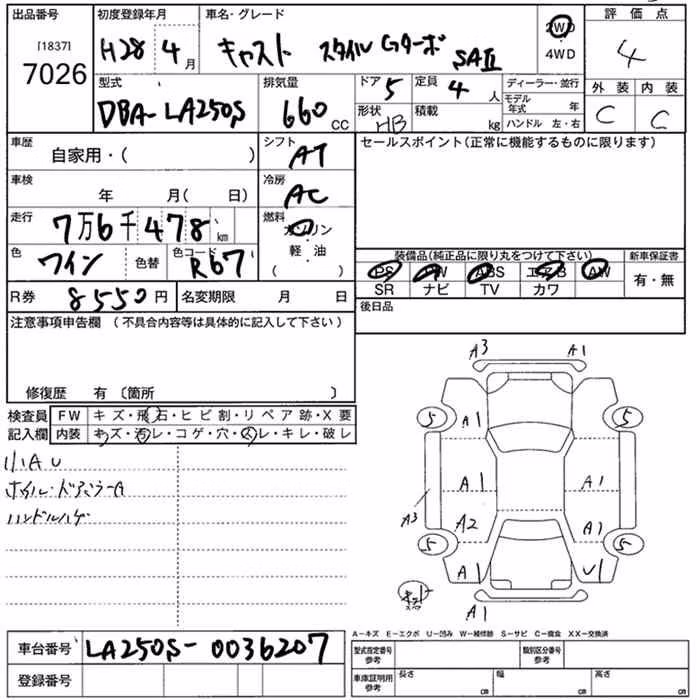 出品番号 初度登録年月 車名・グレード 2WD 評価点
[1837] H28 4月 キャスト スタイル Gターボ SAⅡ ・ 4WD 4
7026
型式 排気量 ドア 5 定員 4人 ディーラー・並行 外装 内装
DBA-LA250S 660 cc 形状 HB 積載 kg モデル年式 年 C C
ハンドル 左・右
車歴 自家用・( ) シフト AT セールスポイント(正常に機能するものに限ります)
車検 年 月( 日) 冷房 AC
走行 7万6千478 km 燃料 ガソリン
色 ワイン 色替 色コード R67 軽・油 ( ・ )
装備品(純正品に限り丸をつけて下さい) 新車保証書
PS PW ABS エアB AW 有・無
SR ナビ TV カワ
R券 8550円 名変期限 月 日 後日品
注意事項申告欄 (不具合内容等は具体的に記入して下さい)
修復歴 有 〔箇所 〕
検査員 FW キズ・飛石・ヒビ割・リペア跡・X要
記入欄 内装 キズ・汚レ・コゲ・穴・スレ・キレ・破レ
小AU
ホイル・ドアミラーA
ハンドルハゲ
A3 A1
5 A1 5
A1 A1
A3 A2 A1
5 5
A1 U1
A1
車台番号 LA250S-0036207
登録番号
A-キズ E-エクボ U-凹み W-補修跡 S-サビ C-腐食 XX-交換済
型式指定番号 参考 類別区分番号 参考
車庫証明用 参考 長さ cm 幅 cm 高さ cm